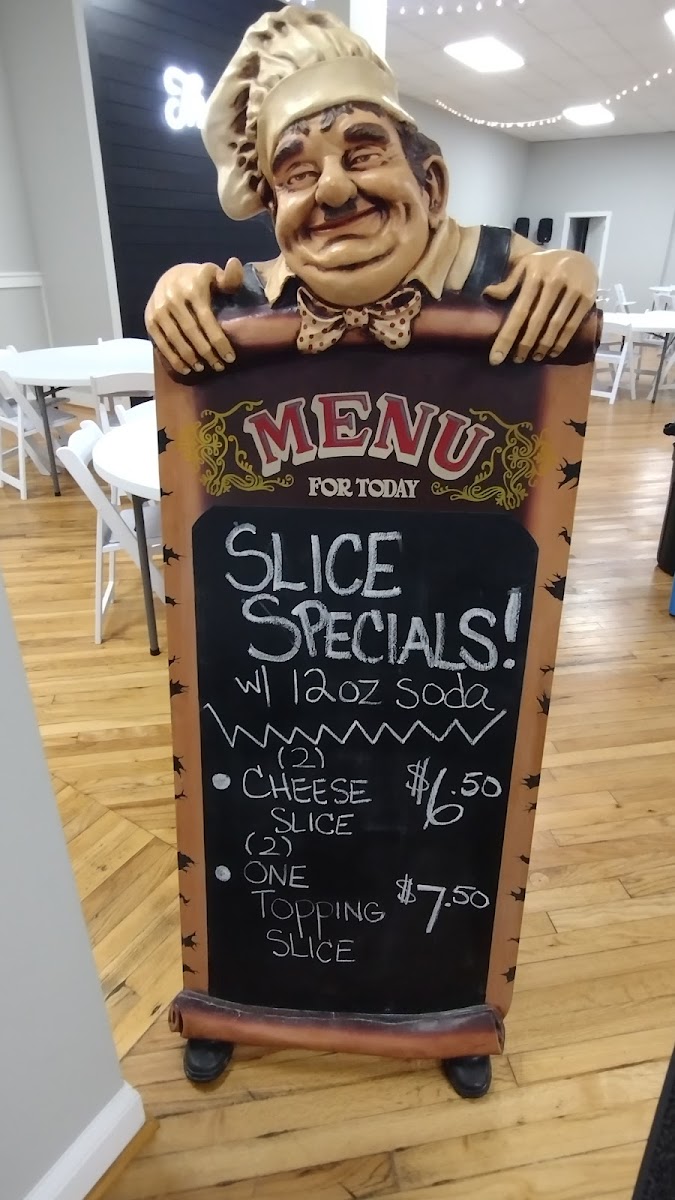 MENU
FOR TODAY
SLICE
SPECIALS!
w/ 12oz soda
(2)
CHEESE $6.50
SLICE
(2)
ONE
TOPPING $7.50
SLICE